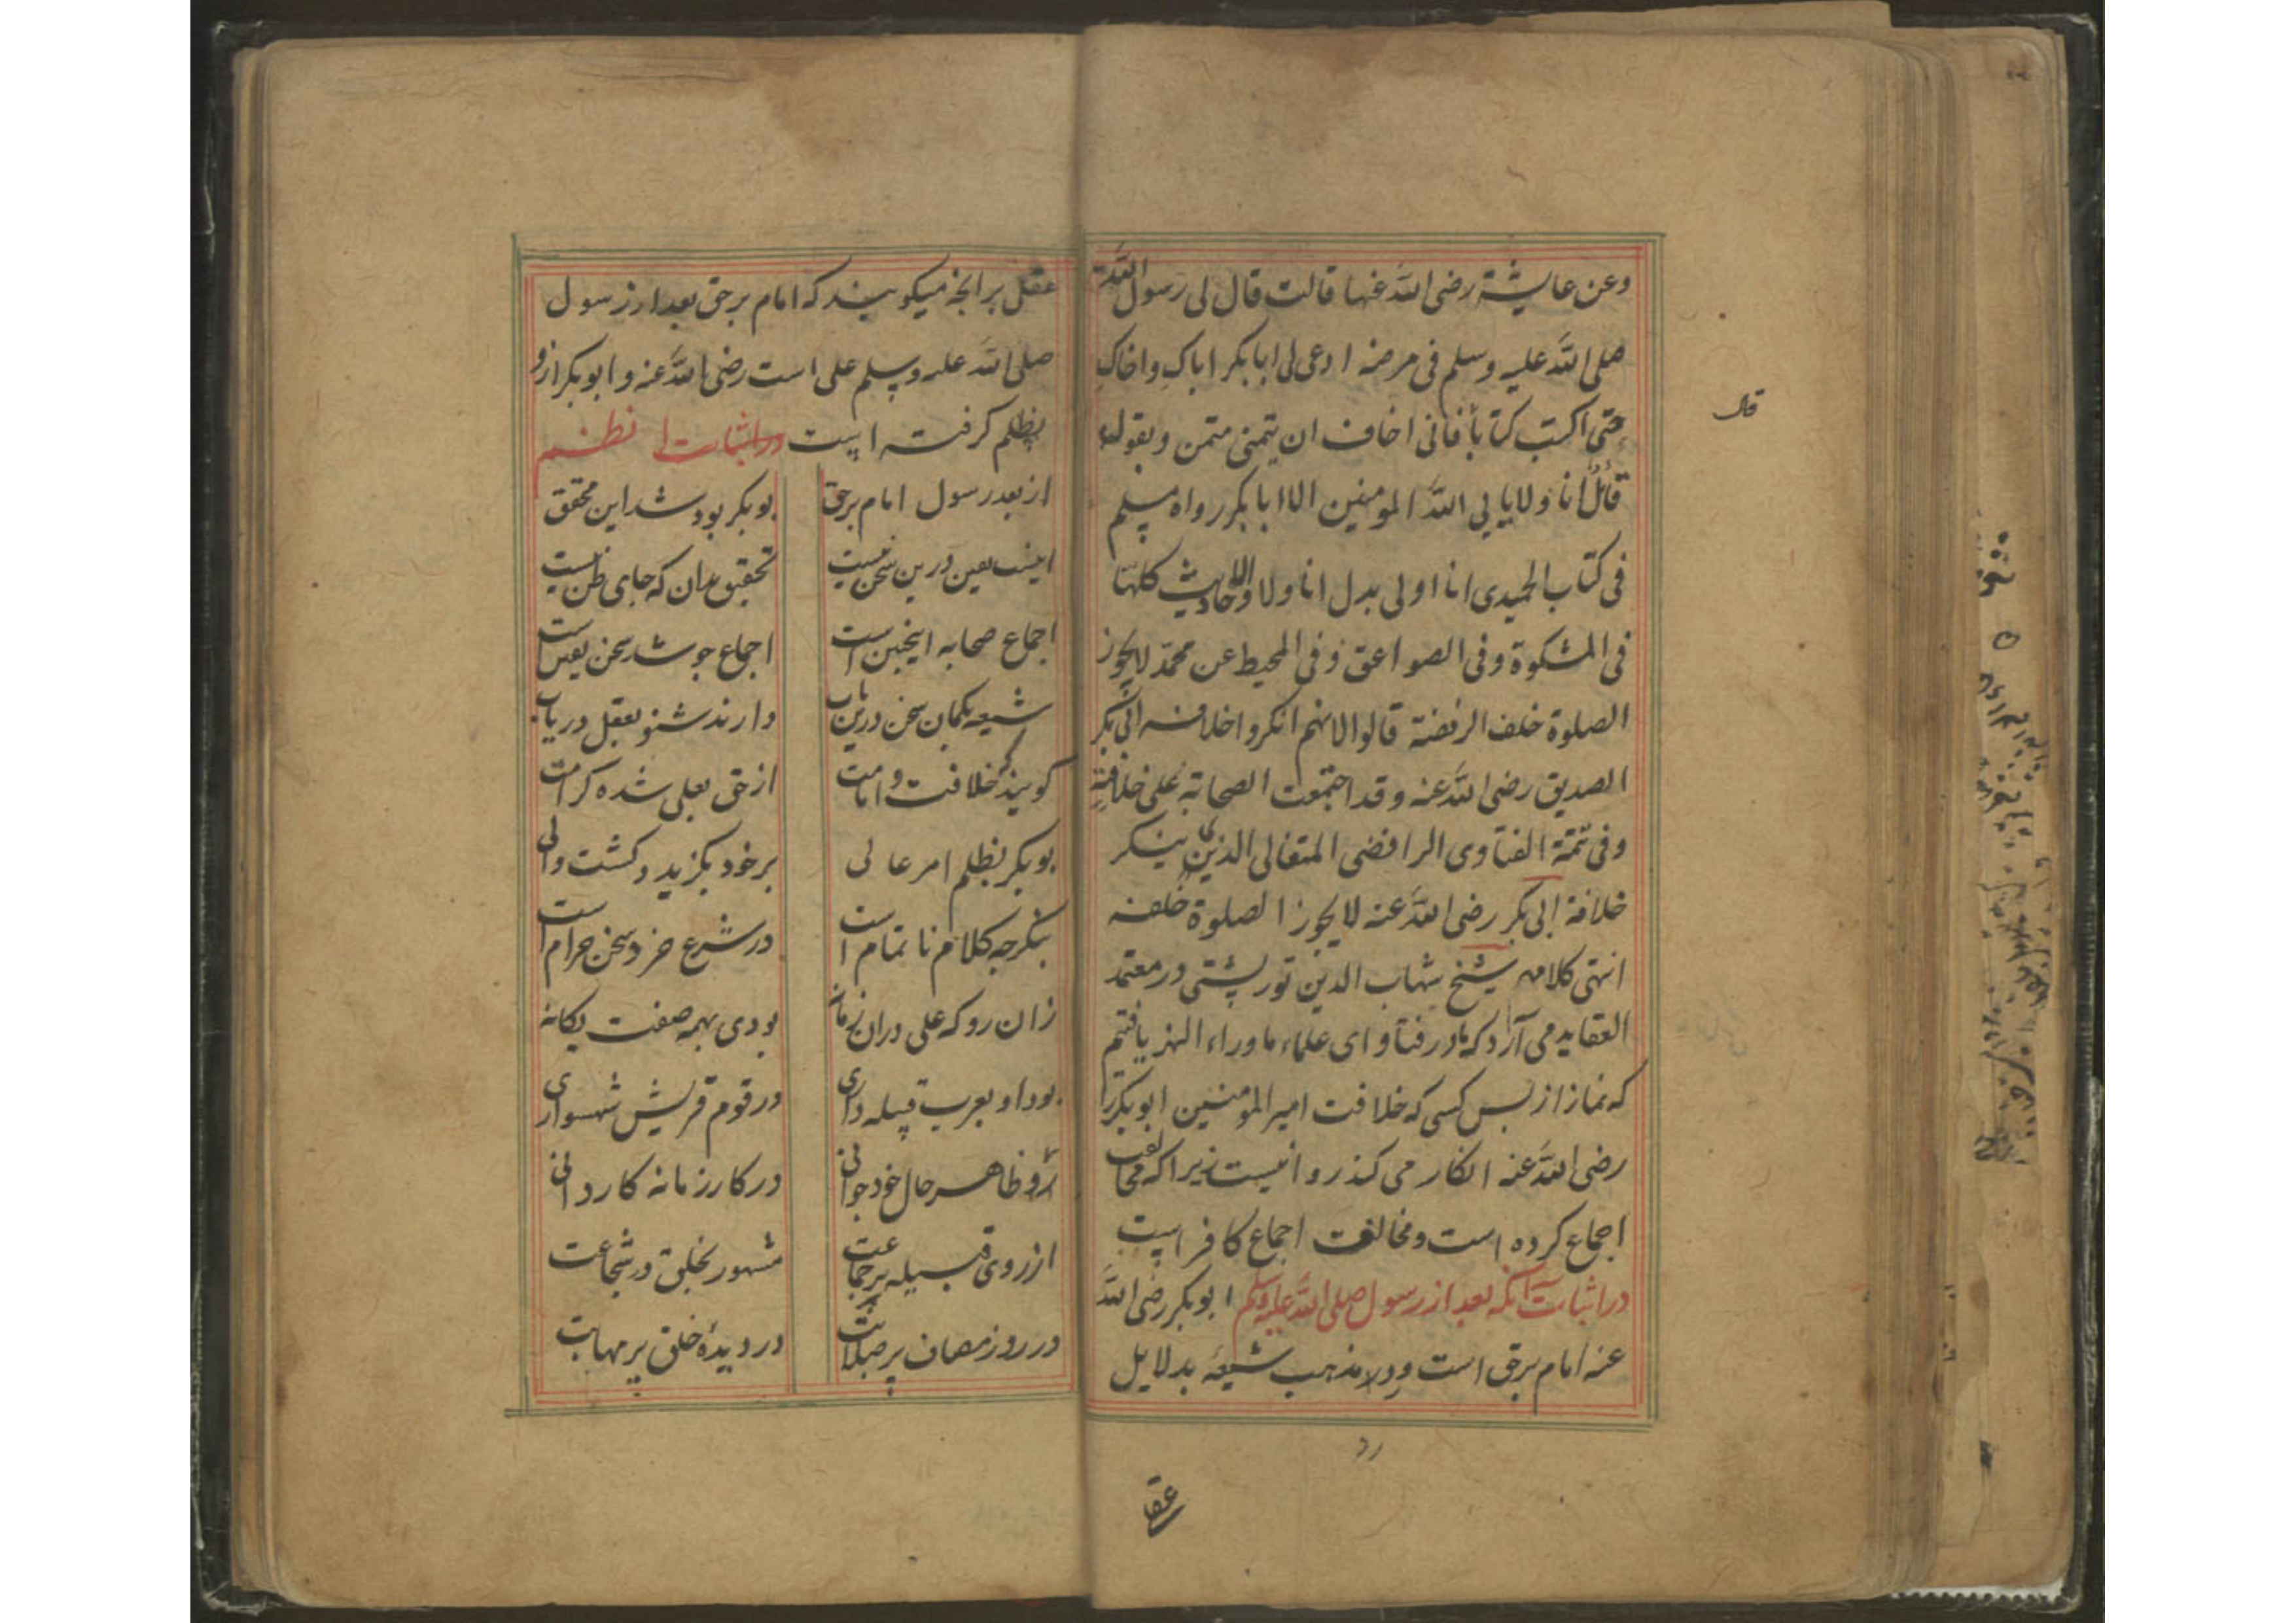 وعن عایشة رضی الله عنها قالت قال لی رسول الله
صلی الله علیه وسلم فی مرضه ادعی لی ابا بکر اباکِ واخاکِ
حتی اکتب کتاباً فانی اخاف ان یتمنی متمن ویقول
قائل انا ولا یابی الله المومنین الا ابا بکر رواه مسلم
فی کتاب الحمیدی انا اولی بدل انا ولا والاحادیث کلها
فی المشکوة وفی الصواعق وفی المحیط عن محمد لا یجوز
الصلوة خلف الرفضة قالوا لانهم انکروا خلافه ابی بکر
الصدیق رضی الله عنه وقد اجتمعت الصحابة علی خلافته
وفی تتمة الفتاوی الرافضی المتغالی الذین ینکر
خلافة ابی بکر رضی الله عنه لا یجوز الصلوة خلفه
انتهی کلامه شیخ شهاب الدین تورپشتی در معتمد
العقاید می آرد که ما در فتاوای علماء ما وراء النهر یافتیم
که نماز از پس کسی که خلافت امیر المؤمنین ابوبکر را
رضی الله عنه انکار می کند روا نیست زیرا که مخالف
اجماع کرده است ومخالفت اجماع کافر است
در اثبات آنکه بعد از رسول صلی الله علیه وسلم ابوبکر رضی الله
عنه امام برحق است مذهب شیعه بدلایل
رد
عقل
قال
عقل بر انچه میکویند که امام برحق بعد از رسول
صلی الله علیه وسلم علی است رضی الله عنه وابوبکر ازو
بظلم کرفته است در اثبات نظم
از بعد رسول امام برحق بوبکر بود شد این محقق
اینست یقین درین سخن نیست تحقیق بدان که جای ظن نیست
اجماع صحابه اینچنین است اجماع چو شد سخن یقین است
شیعه بکمان سخن درین باب دارند شنو بعقل دریاب
کویند که خلافت و امامت از حق بعلی شده کرامت
بوبکر بظلم امر عالی بر خود بکزید وکشت والی
بنکر چه کلام ناتمام است در شرع خرد سخن حرام است
زان رو که علی دران زمانه بودی بهمه صفت یکانه
بود او بعرب قبیله داری در قوم قریش شهسواری
ظاهر حال خود جوانی در کار زمانه کاردانی
از روی قبیله پر جماعت مشهور بخلق در شجاعت
در روز مصاف پر صلابت در دیدهٔ خلق پر مهابت